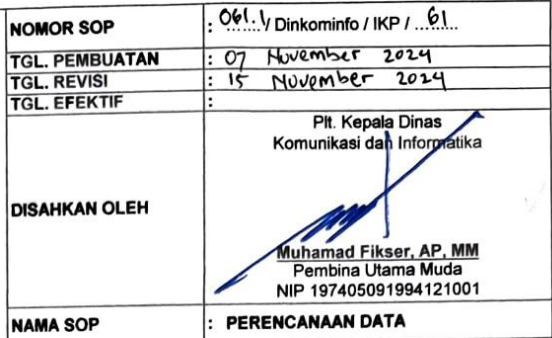 NOMOR SOP : 061.1/ Dinkominfo / IKP / 61
TGL. PEMBUATAN : 07 November 2024
TGL. REVISI : 15 November 2024
TGL. EFEKTIF :
DISAHKAN OLEH
Plt. Kepala Dinas
Komunikasi dan Informatika
Muhamad Fikser, AP, MM
Pembina Utama Muda
NIP 197405091994121001
NAMA SOP : PERENCANAAN DATA